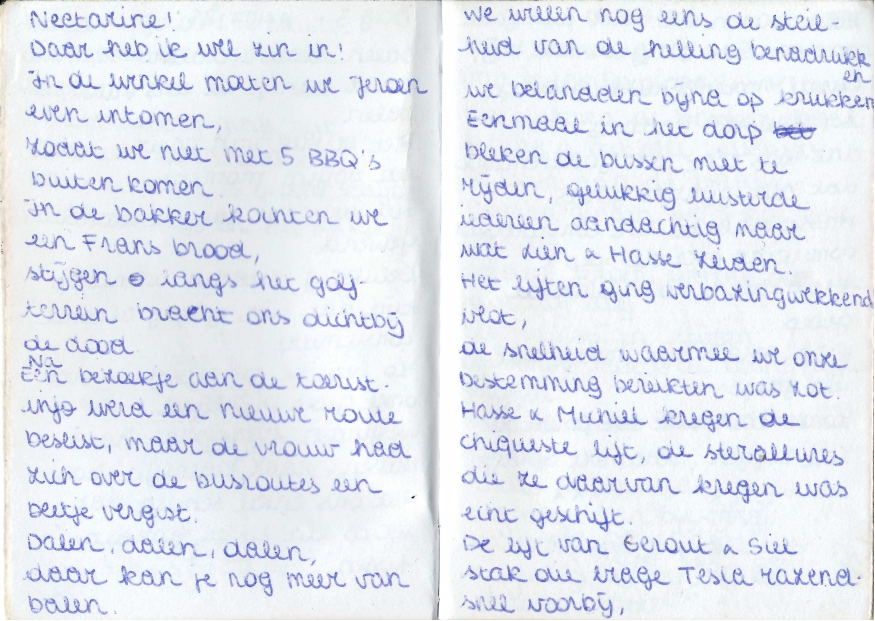 Nectarine!
Daar heb ik wel zin in!
In de winkel moeten we Jeroen
even intomen,
zodat we niet met 5 BBQ's
buiten komen.
In de bakker kochten we
een Frans brood,
stijgen langs het golf-
terrein bracht ons dichtbij
de dood
Na
Een bezoekje aan de toerist.
info werd een nieuwe route
beslist, maar de vrouw had
zich over de busroutes een
beetje vergist.
Dalen, dalen, dalen,
daar kan je nog meer van
balen.
We willen nog eens de steil-
heid van de helling benadrukk
en
we belandden bijna op krukken
Eenmaal in het dorp
bleken de bussen niet te
rijden, gelukkig luisterde
iedereen aandachtig naar
wat Lien & Hasse zeiden.
Het liften ging verbazingwekkend
vlot,
de snelheid waarmee we onze
bestemming bereikten was zot.
Hasse & Muriel kregen de
chiqueste lift, de sterallures
die ze daarvan kregen was
echt geschift.
De lift van Gerout & Siel
stak die trage Tesla razend-
snel voorbij,